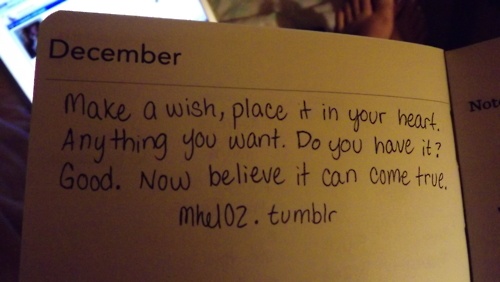 December
Make a wish, place it in your heart.
Anything you want. Do you have it?
Good. Now believe it can come true.
mhel02.tumblr